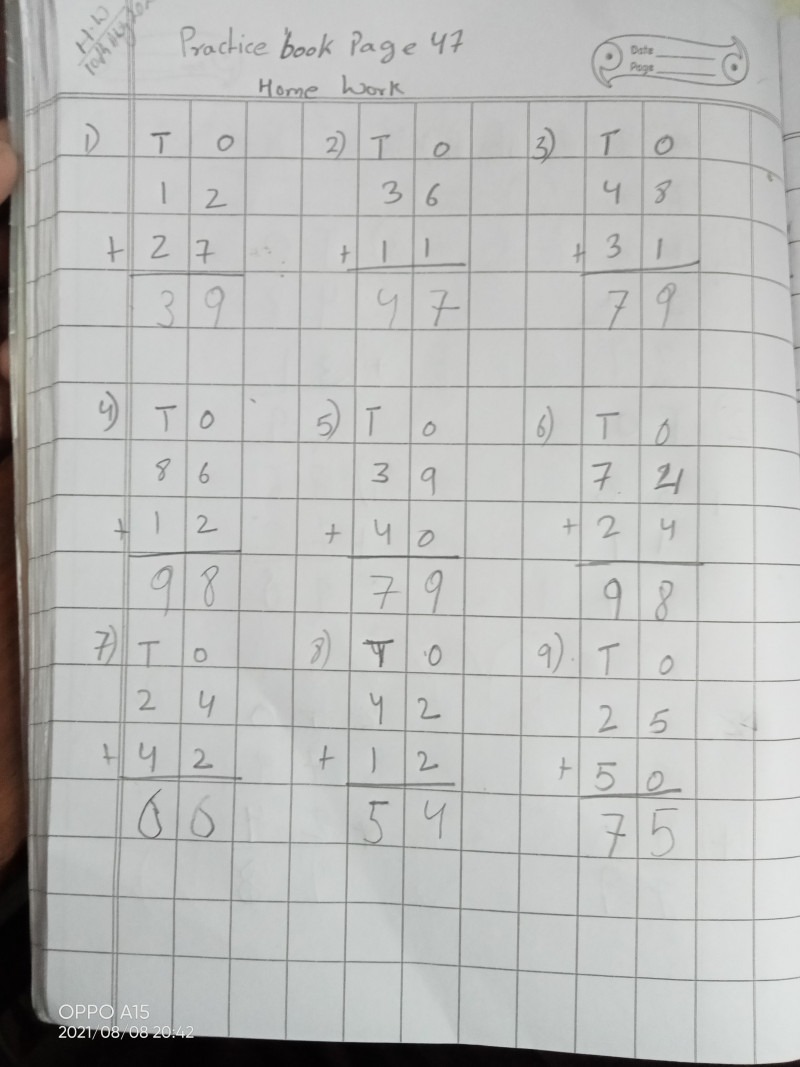 H.W
Practice book Page 47
Date
Page
Home Work
1) T O 2) T O 3) T O
1 2 3 6 4 8
+ 2 7 + 1 1 + 3 1
3 9 4 7 7 9
4) T O 5) T O 6) T O
8 6 3 9 7 4
+ 1 2 + 4 0 + 2 4
9 8 7 9 9 8
7) T O 8) T O 9) T O
2 4 4 2 2 5
+ 4 2 + 1 2 + 5 0
6 6 5 4 7 5
OPPO A15
2021/08/08 20:42